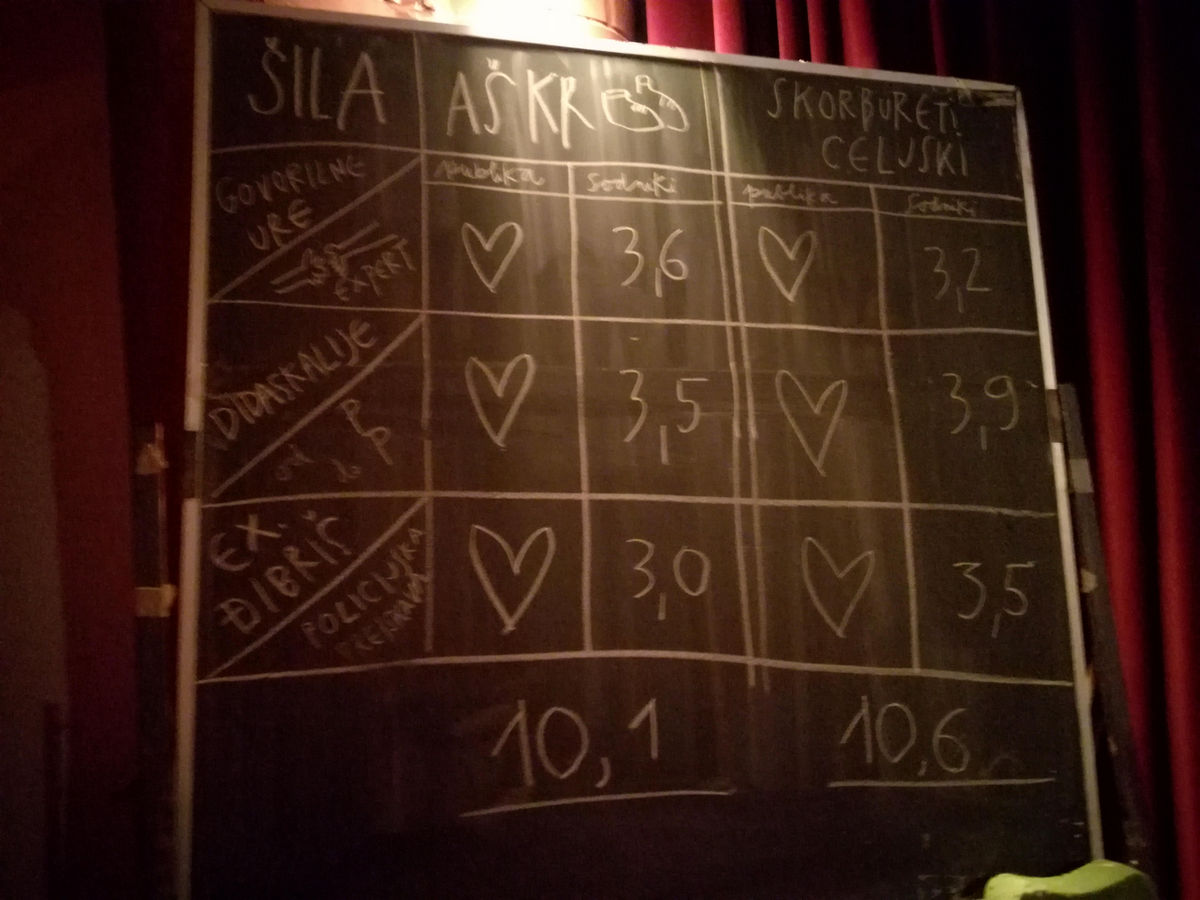 ŠILA
AŠKR
SKORBURETI
CELJSKI
publika
sodniki
publika
sodniki
GOVORILNE
URE
EXPERT
3,6
3,2
DIDASKALIJE
od
P
P
3,5
3,9
EX.
ĐIBRIŠ
POLICIJSKA
3,0
3,5
10,1
10,6